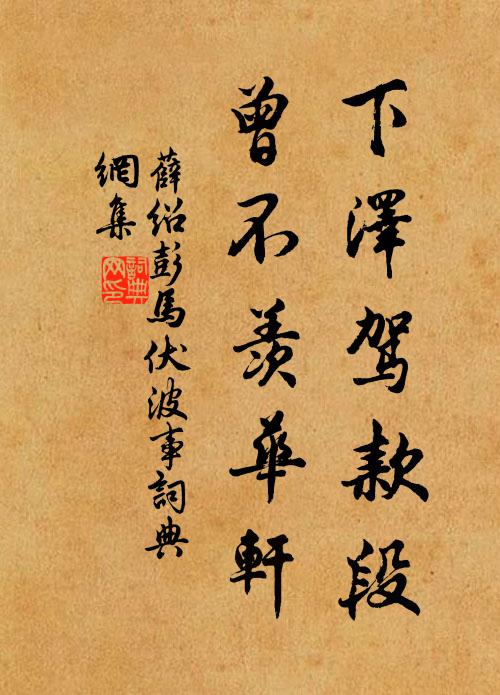 下澤駕款段
曾不羨華軒
薛紹彭馬伏波事詞典
網集
詞典網印